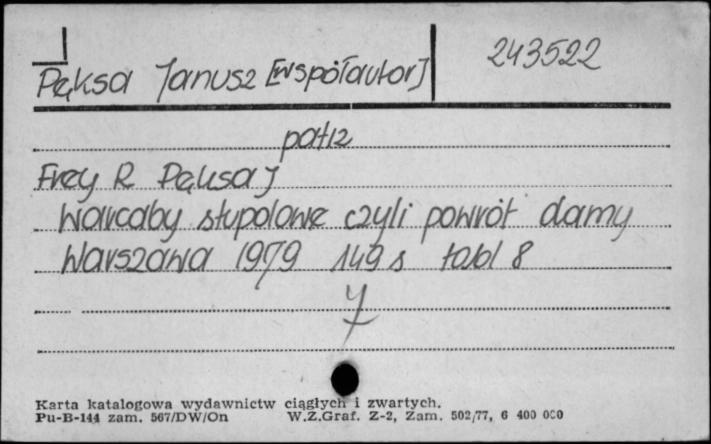 Pęksa Janusz [współautor] 243522
patrz
Frey R Pęksa J
Warcaby stupolowe czyli powrót damy
Warszawa 1979 149 s tabl 8
Karta katalogowa wydawnictw ciągłych i zwartych.
Pu-B-144 zam. 567/DW/On W.Z.Graf. Z-2, Zam. 502/77, 6 400 000